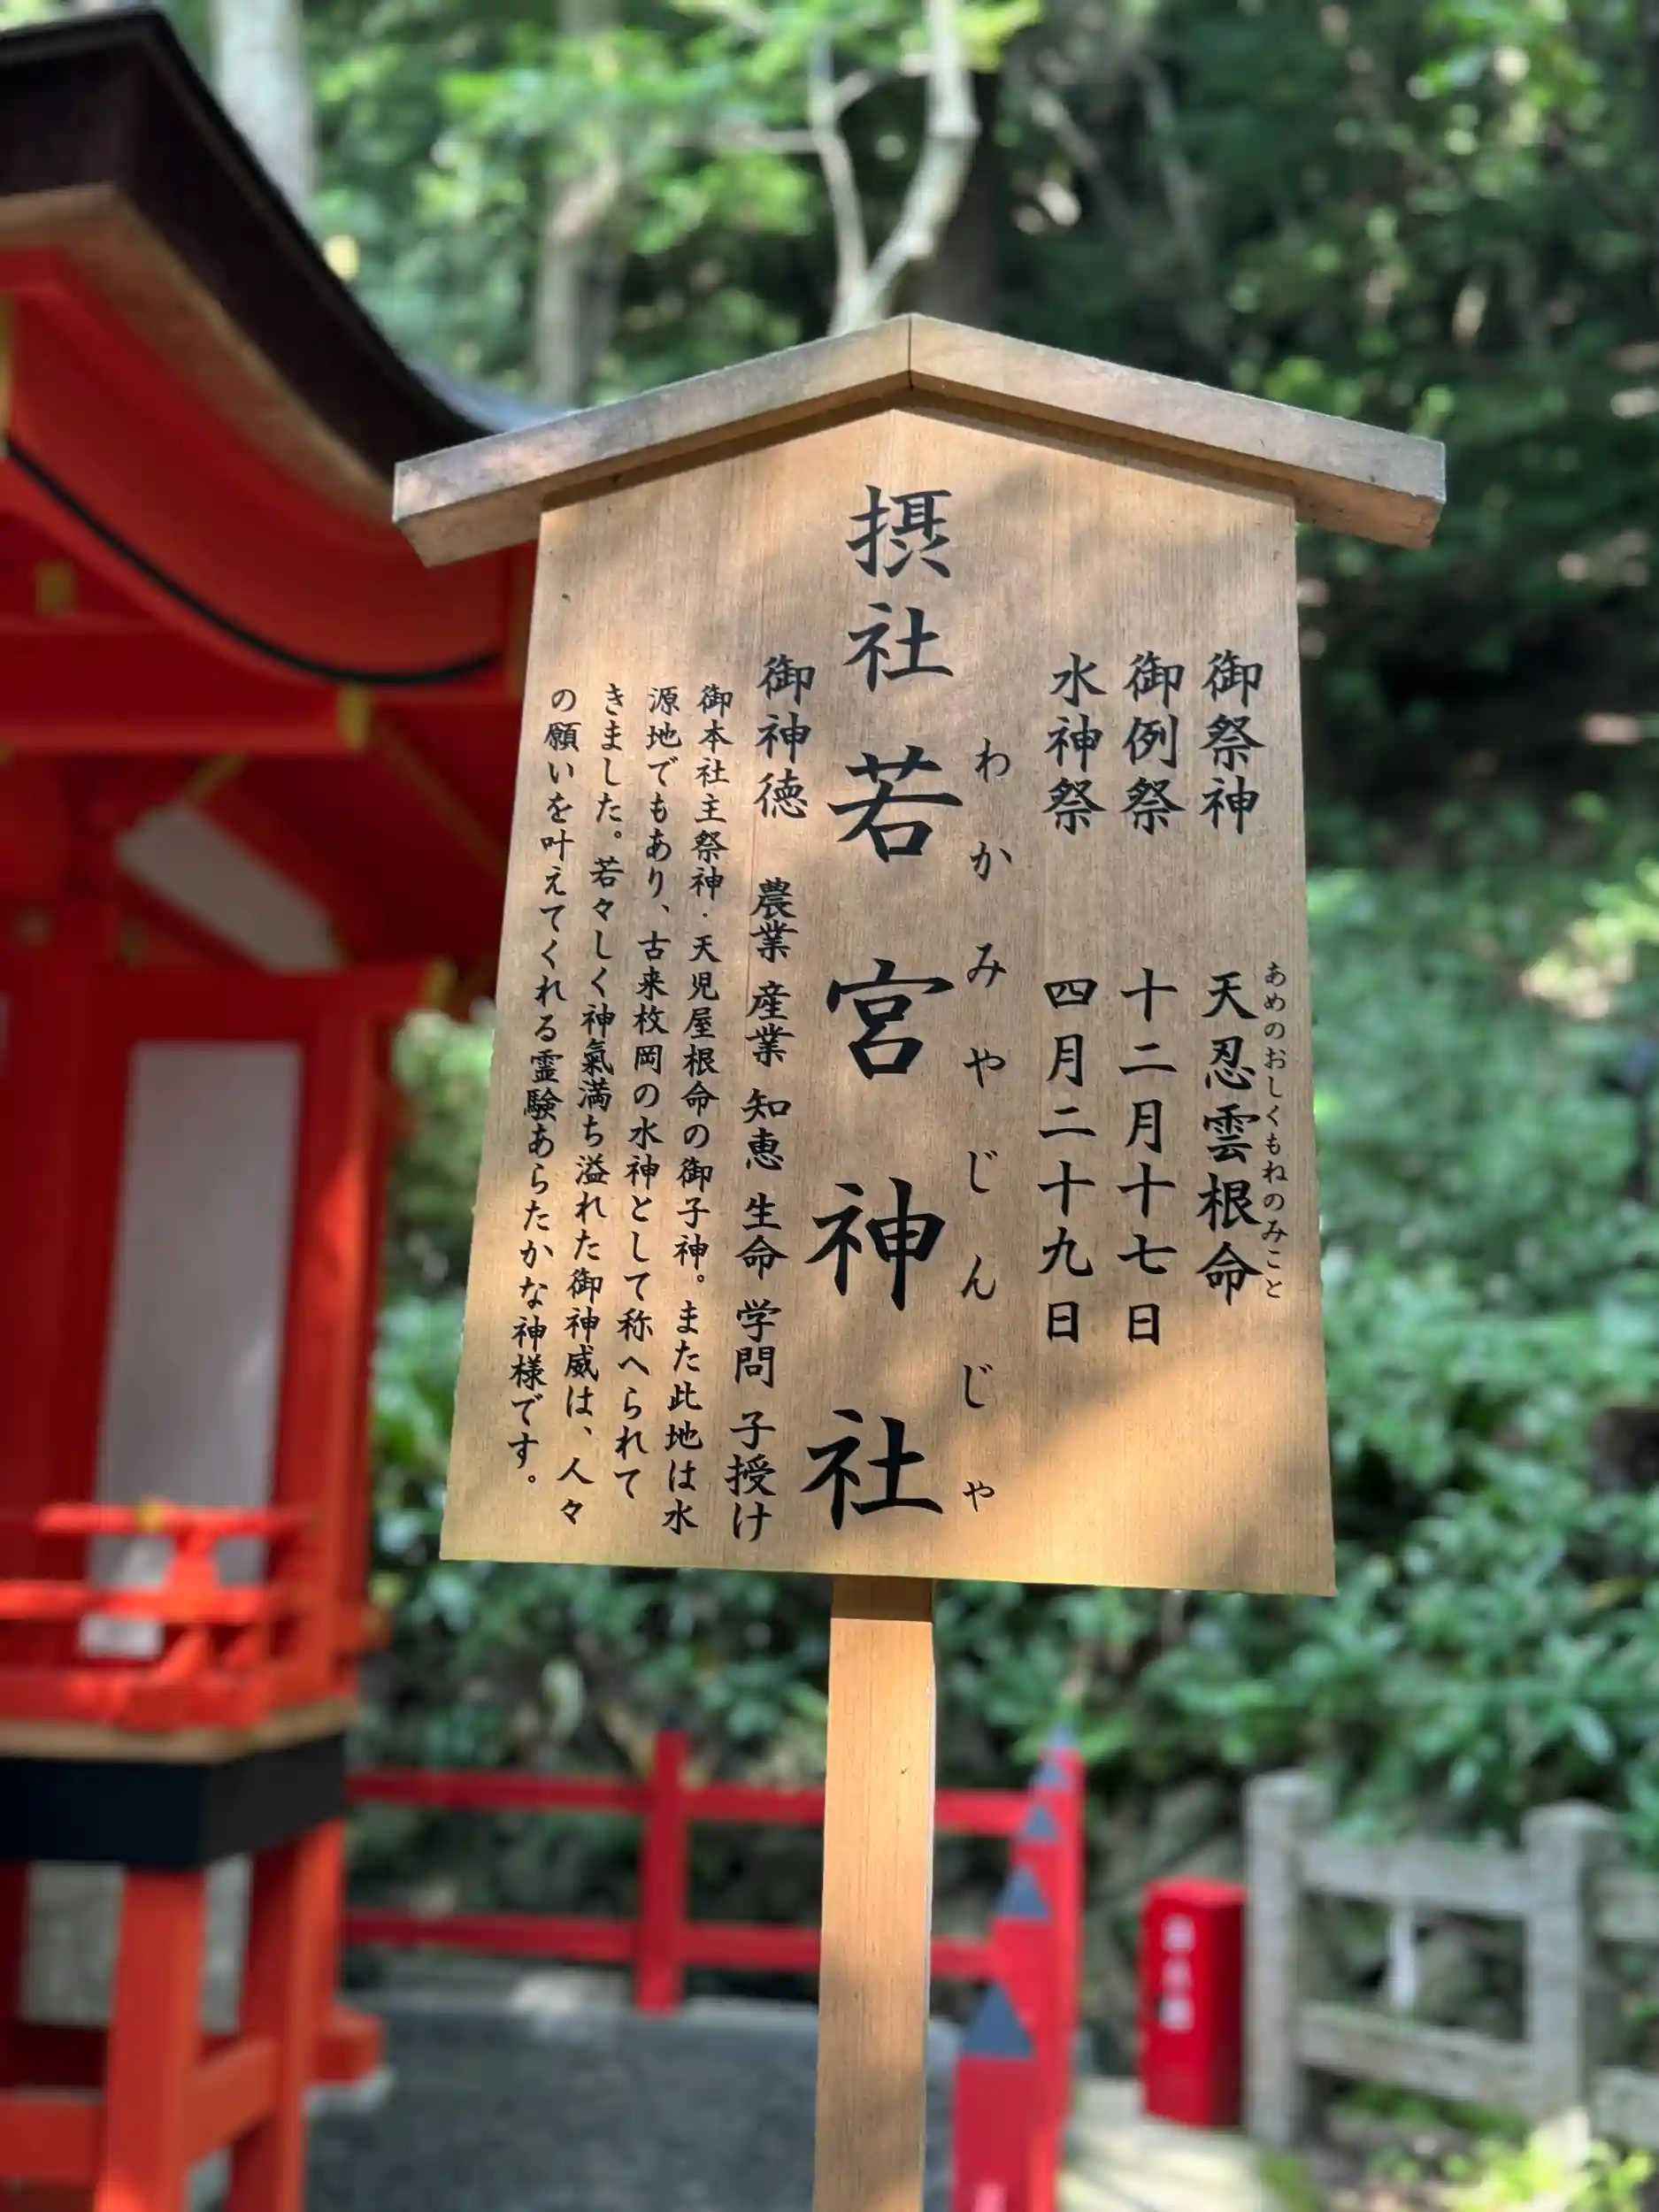 御祭神 天忍雲根命
あめのおしくもねのみこと
御例祭 十二月十七日
水神祭 四月二十九日
わかみやじんじゃ
摂社 若宮神社
御神徳 農業 産業 知恵 生命 学問 子授け
御本社主祭神・天児屋根命の御子神。また此地は水
源地でもあり、古来枚岡の水神として称へられて
きました。若々しく神氣満ち溢れた御神威は、人々
の願いを叶えてくれる霊験あらたかな神様です。